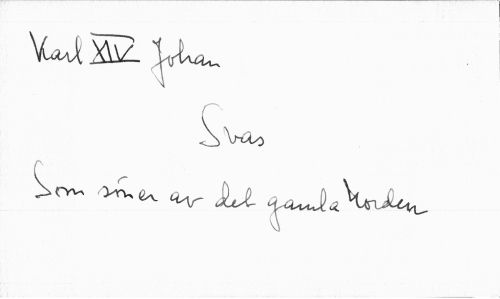 Karl XIV Johan
Svas
Som söner av det gamla Norden